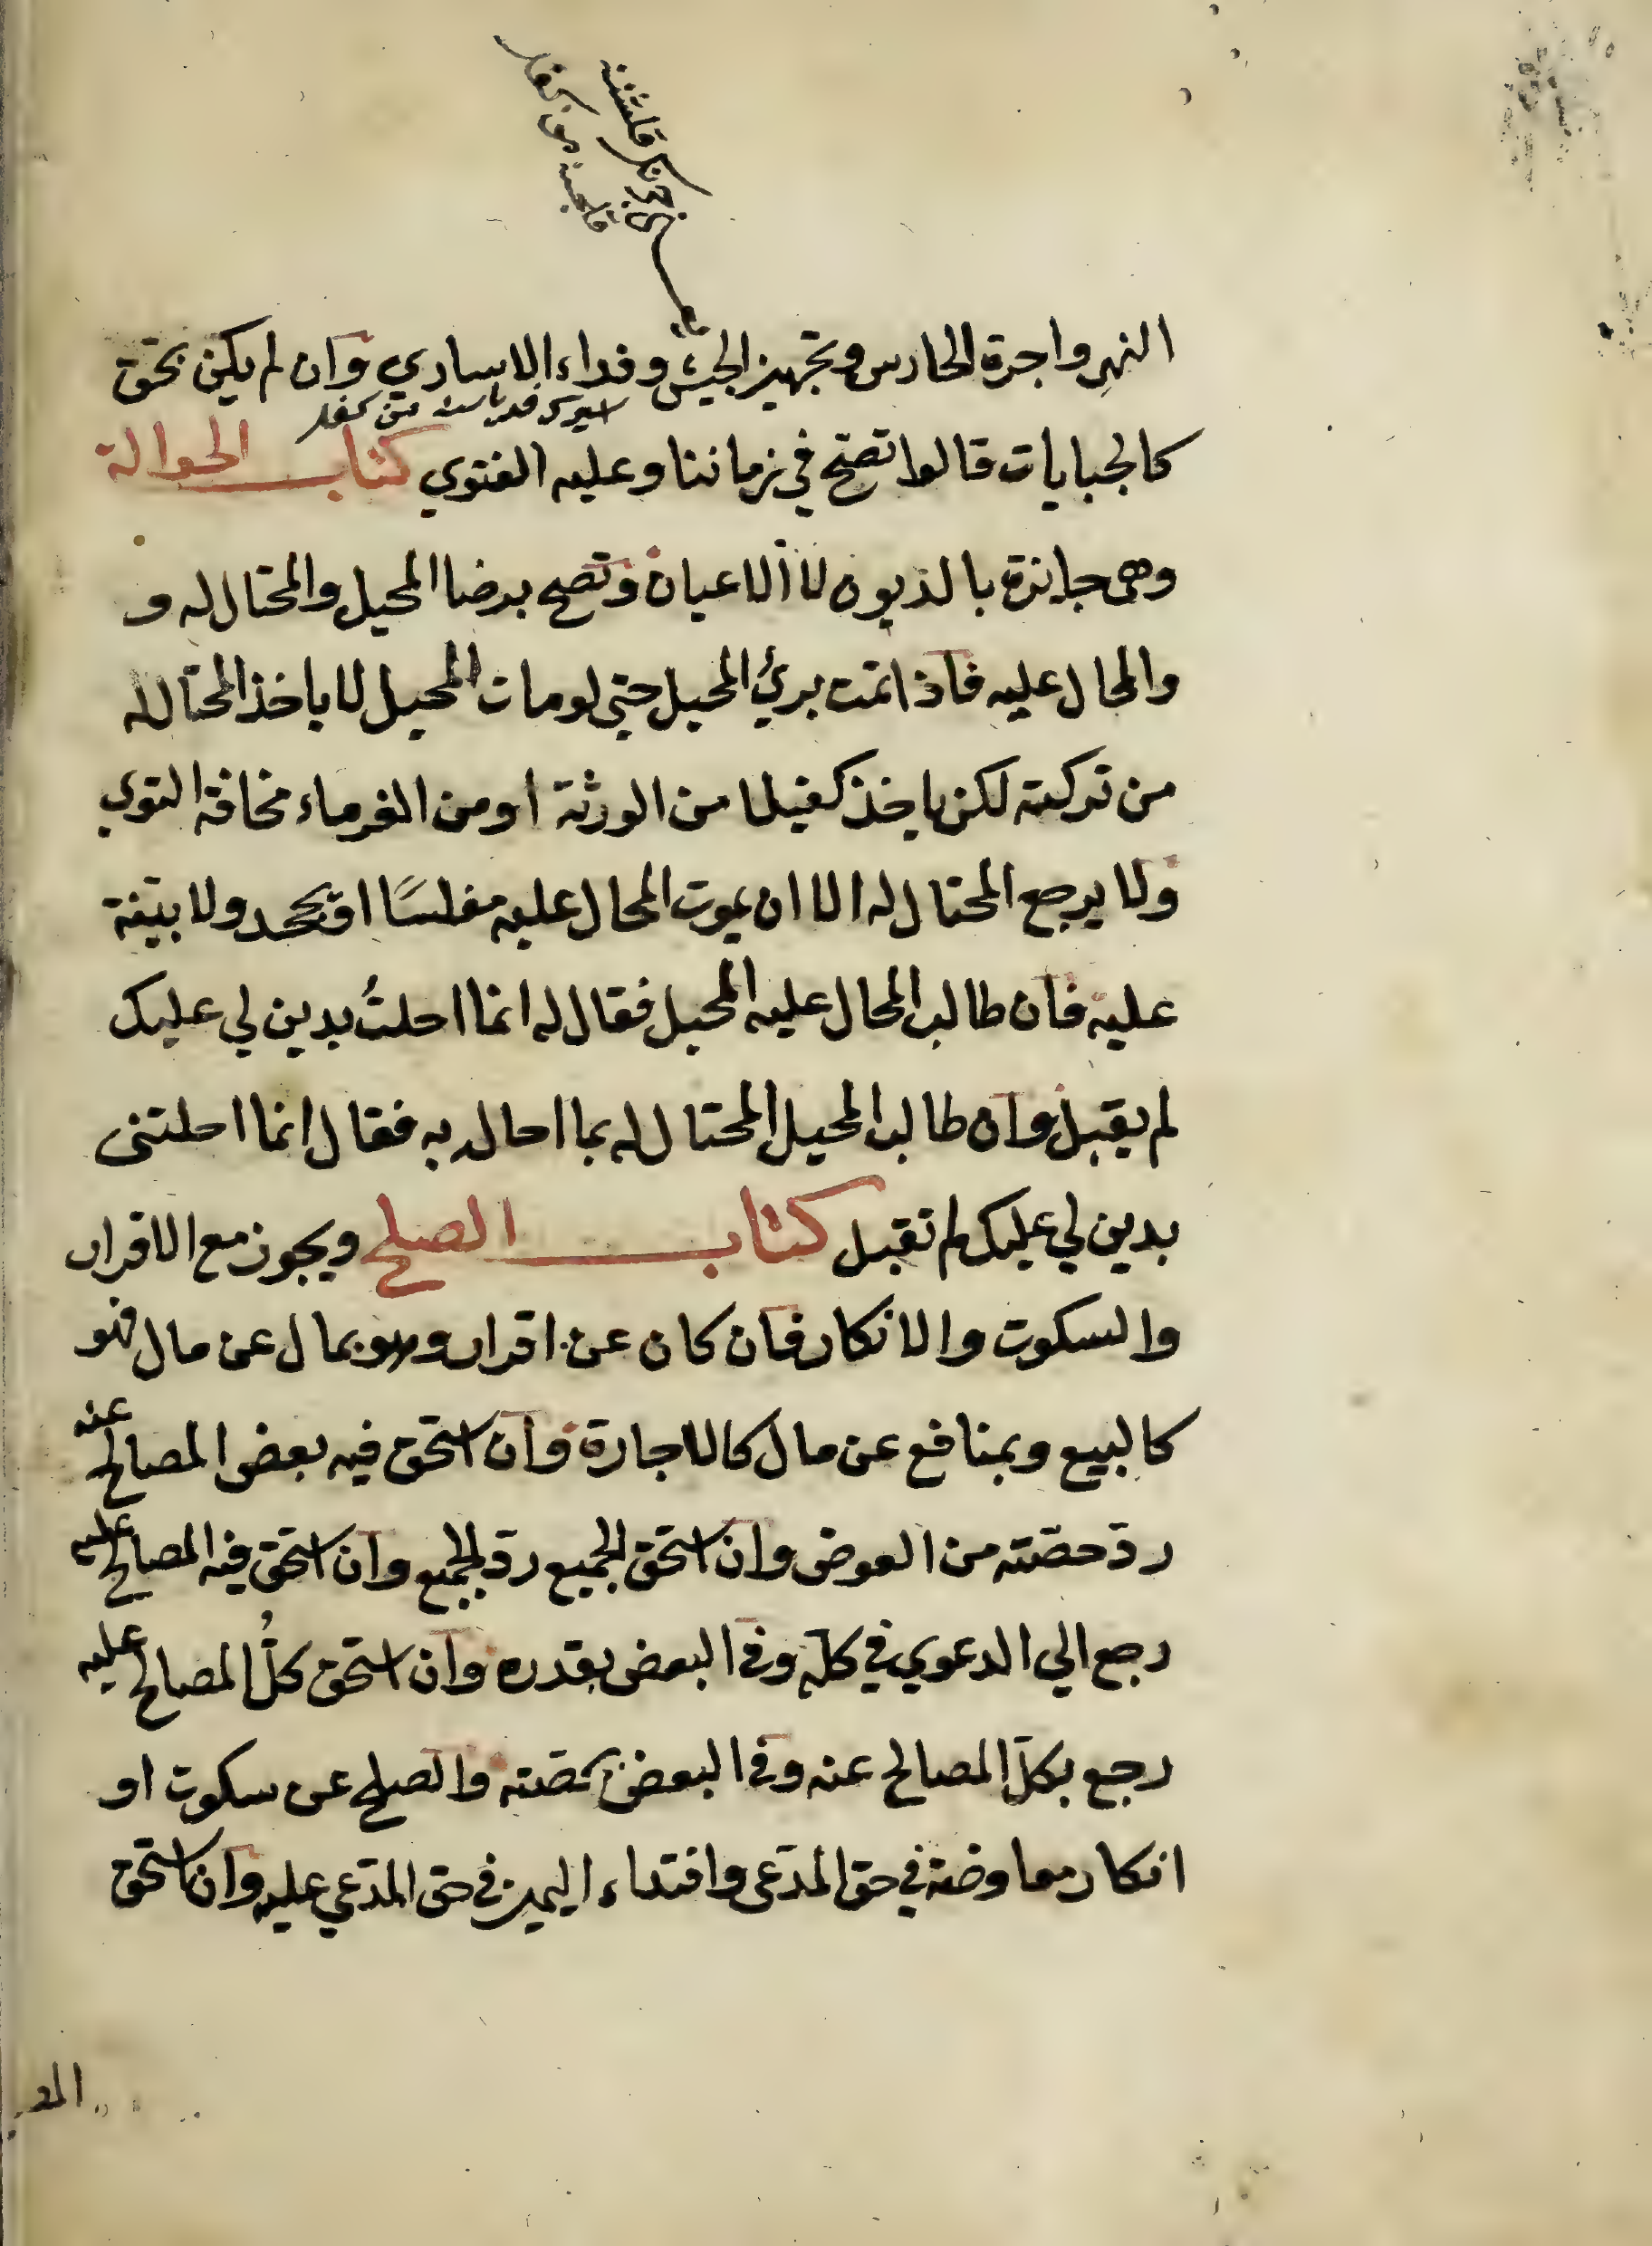 النهر واجرة الحارس وتجهيز الجيش وفداء الاساري وان لم يكن بحق
كالجبايات قالوا تصح في زماننا وعليه الفتوي كتاب الحوالة
وهى جايزة بالديون لا الاعيان وتصح برضا المحيل والمحتال له و
والمحال عليه فاذا تمت برئ المحيل حتي لومات المحيل لا ياخذ المحتال له
من تركته لكن ياخذ كفيلا من الورثة او من الغرماء مخافة التوي
ولا يرجع المحتال له الا ان يموت المحال عليه مفلسًا او يجحد ولا بيّنة
عليه فان طالب المحال عليه المحيل فقال له انما احلتُ بدين لي عليك
لم يقبل وان طالب المحيل المحتال له بما احال به فقال انما احلتنى
بدين لي عليك لم تقبل كتاب الصلح ويجوز مع الاقرار
والسكوت والانكار فان كان عن اقرار وهو بمال عن مال فهو
كالبيع وبمنافع عن مال كالاجارة وان استحق فيه بعض المصالح عنه
ردّ حصّته من العوض وان استحق الجميع ردّ الجميع وان استحق فيه المصالح عليه
رجع الي الدعوي في كلّه وفي البعض بقدره وان استحق كلُّ المصالح عليه
رجع بكلّ المصالح عنه وفي البعض بحصّته والصلح عن سكوت او
انكار معاوضة في حق المدّعى وافتداء اليمين في حق المدّعي عليه وان استحق